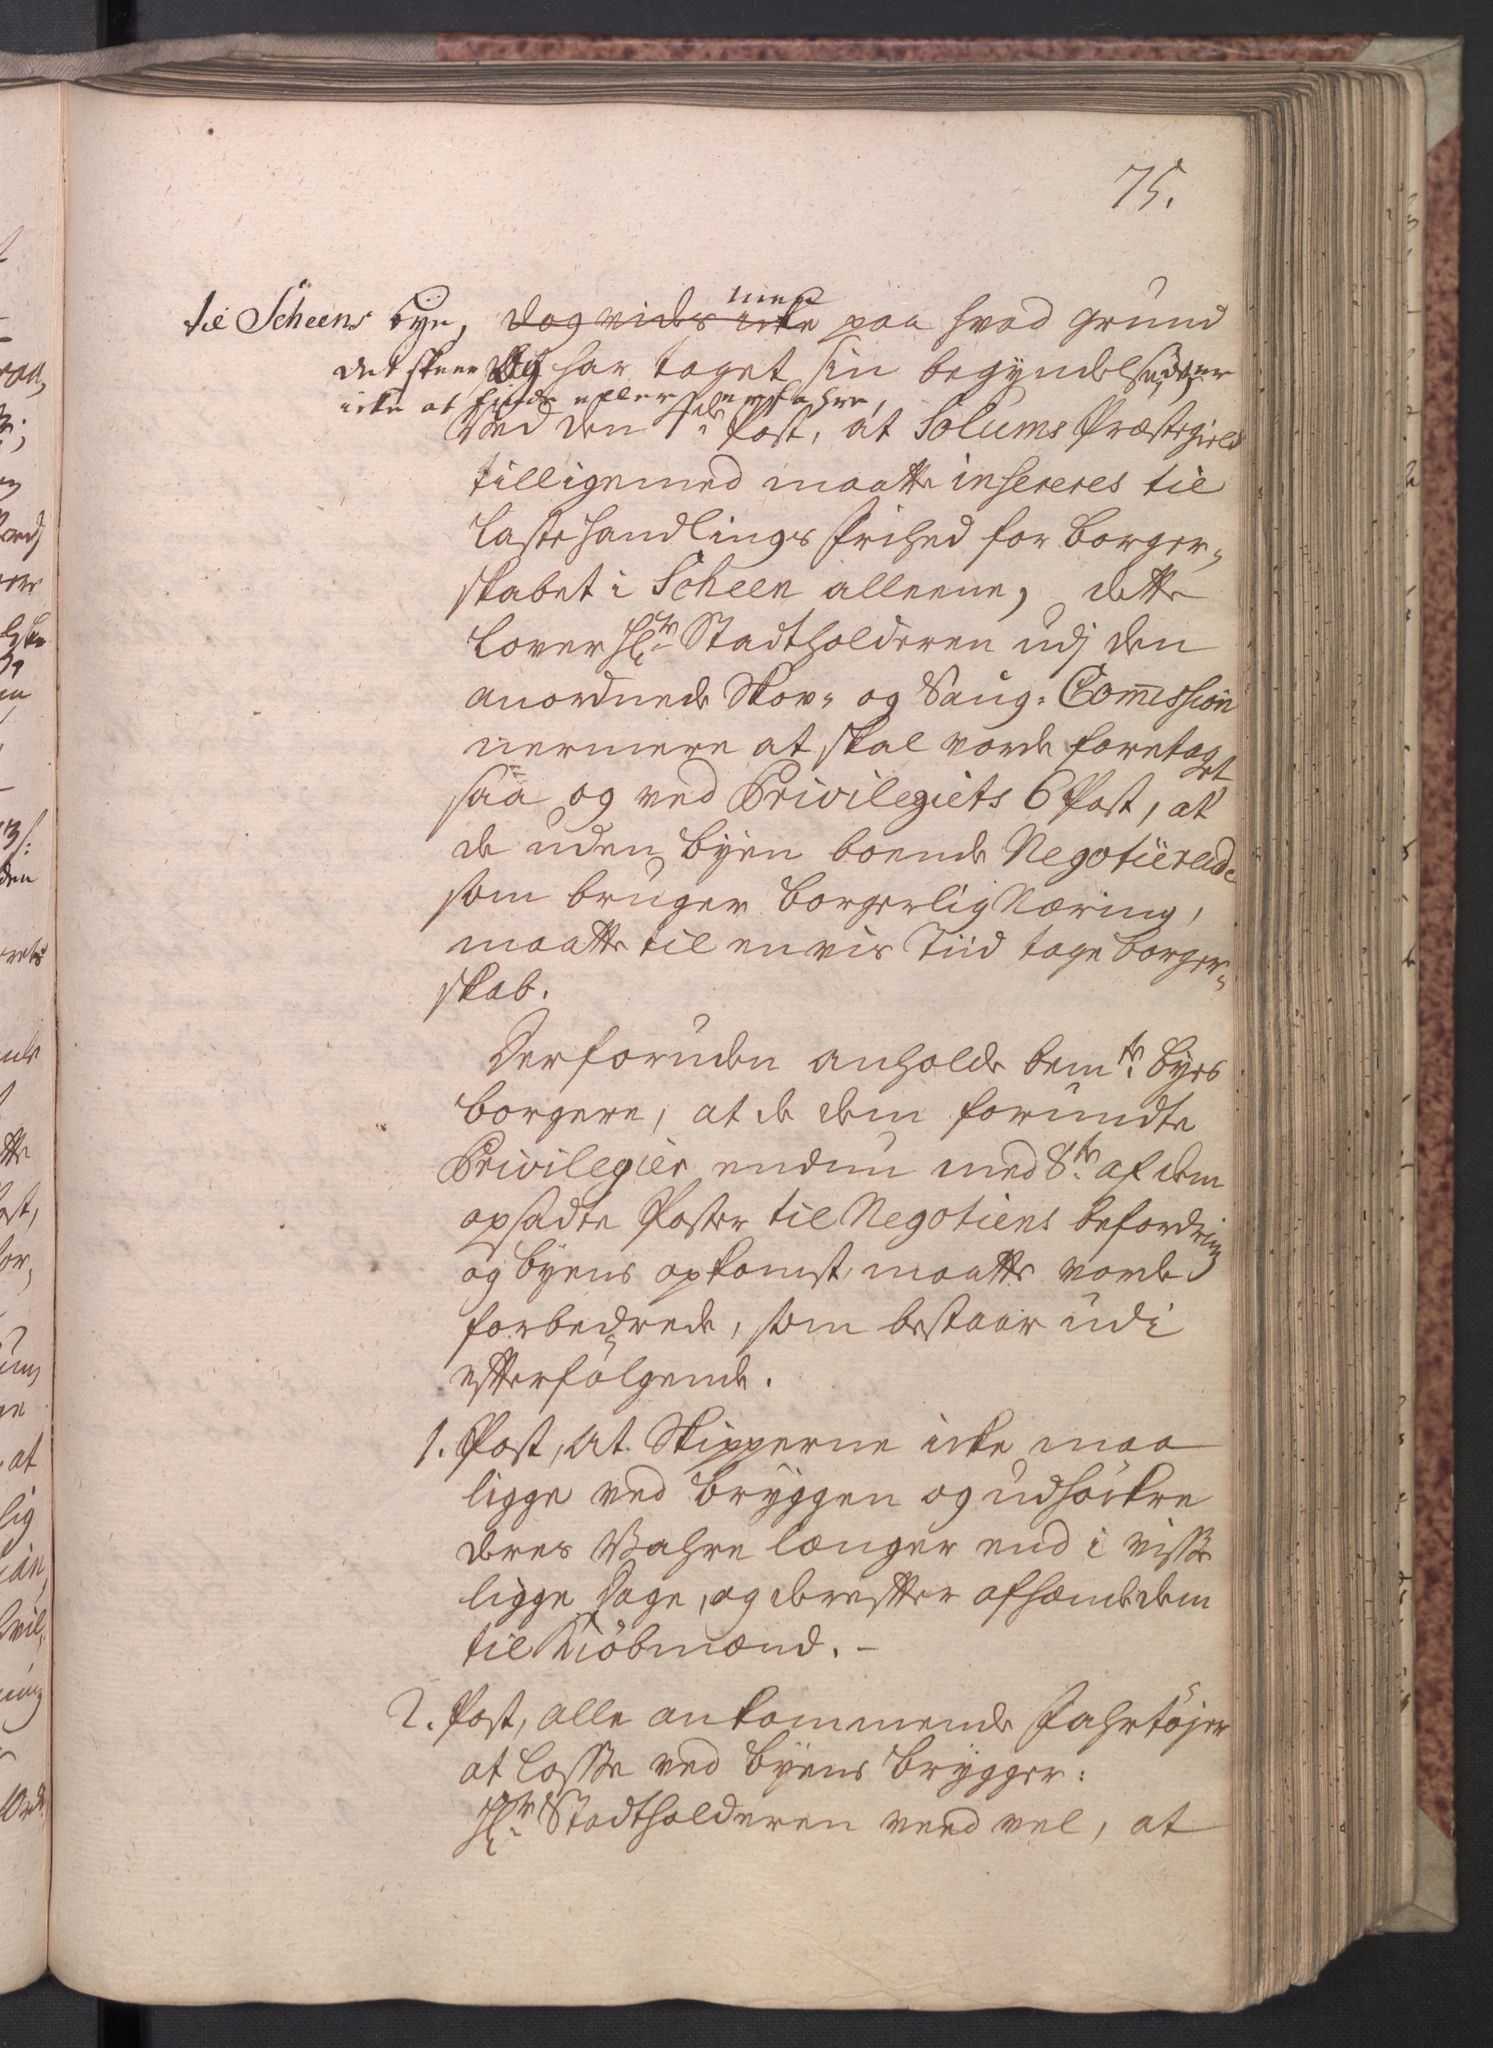 75.
til Scheens bye, dog vides icke men paa hvad grund
det skeer Og har taget sin begyndelse, er
icke at finde eller erfahre,
Ved den 1ste Post, at Solums Præstegield
tilligemed maatte insereres til
Lastehandlings Frihed for borger-
skabet i Scheen alleene, dette
lover Hr. Stadtholderen udj den
anordnede Skov- og Saug-Commission
nermere at skal vorde foretaget
saa og ved Privilegiets 6 Post, at
de uden byen boende Negotierende
som bruger borgerlig Næring,
maatte til en vis Tiid tage borger-
skab.
Derforuden anholde bemte byes
borgere, at de dem forundte
Privilegier endnu med 8te af dem
opsadte Poster til Negotiens befordring
og byens opkomst, maatte vorde
forbedrede, som bestaar udi
efterfølgende.
1. Post, At Skipperne icke maa
ligge ved bryggen og udhöckre
deres Vahre længer end i visse
ligge Dage, og derefter afhænde dem
til Kiöbmænd. -
2. Post, alle ankommende Fahrtöjer
at losse ved byens brygger:
Hr. Stadtholderen veed vel, at